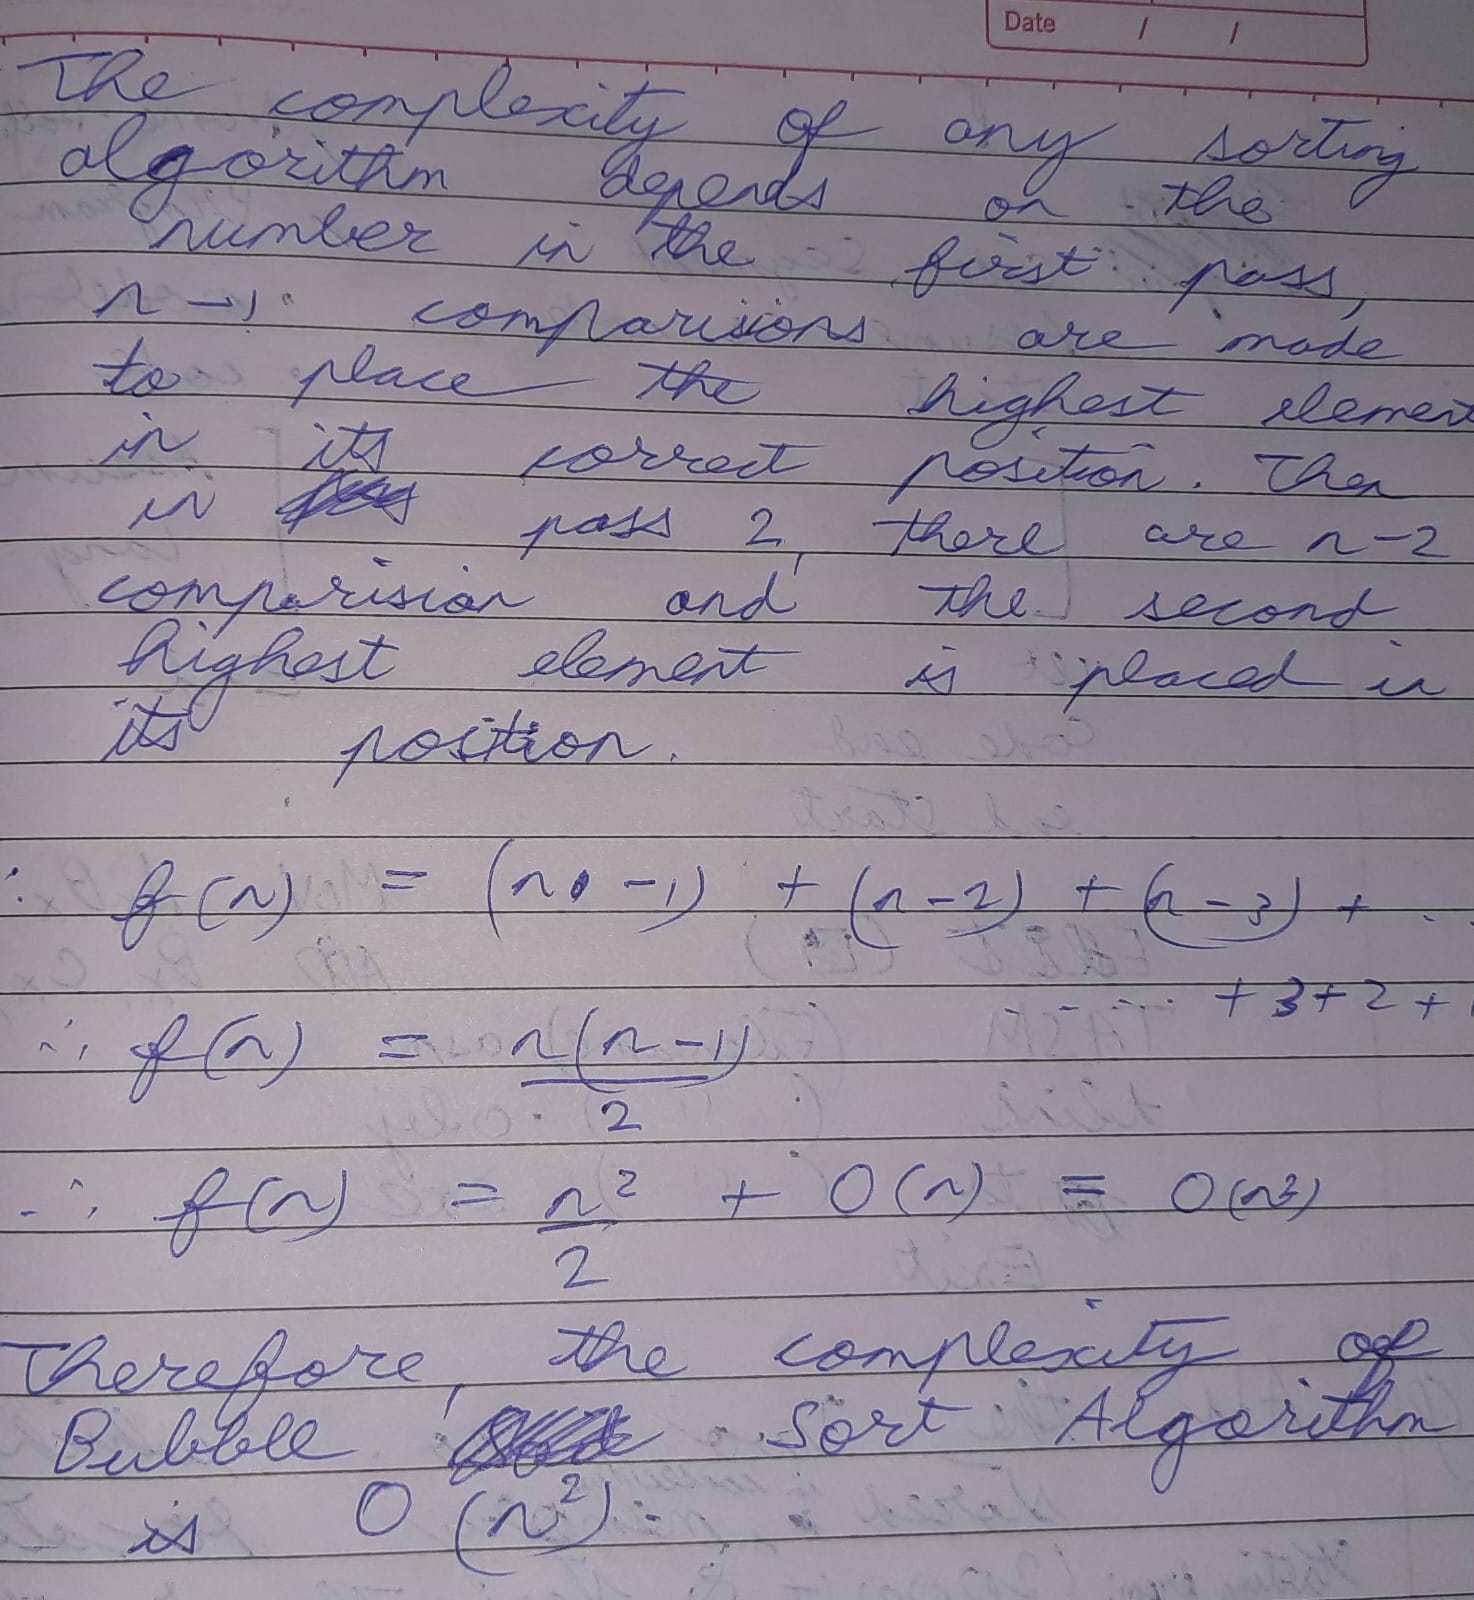 Date / /
The complexity of any sorting
algorithm depends on the
number in the first pass,
n-1 comparisions are made
to place the highest element
in its correct position. Then
in pass 2, there are n-2
comparision and the second
highest element is placed in
its position.
∴ f(n) = (n-1) + (n-2) + (n-3) + ..
---- +3+2+1
∴ f(n) = n(n-1)/2
∴ f(n) = n²/2 + O(n) = O(n²)
Therefore, the complexity of
Bubble Sort Algorithm
is O(n²).